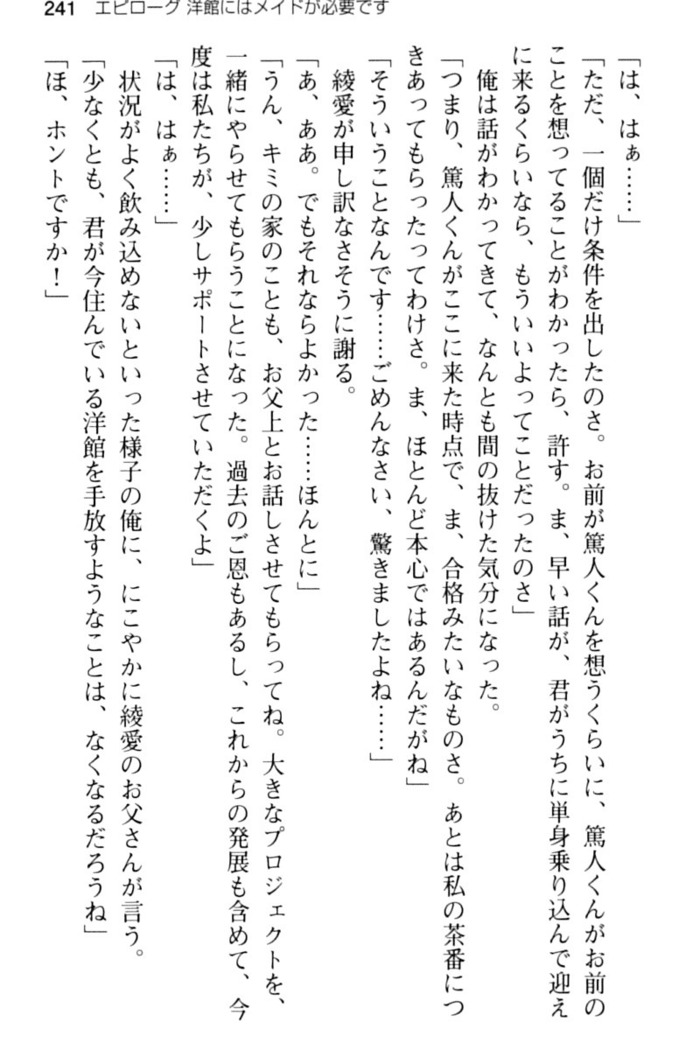 241　エピローグ 洋館にはメイドが必要です
「は、はぁ……」
「ただ、一個だけ条件を出したのさ。お前が篤人くんを想うくらいに、篤人くんがお前の
ことを想ってることがわかったら、許す。ま、早い話が、君がうちに単身乗り込んで迎え
に来るくらいなら、もういいよってことだったのさ」
俺は話がわかってきて、なんとも間の抜けた気分になった。
「つまり、篤人くんがここに来た時点で、ま、合格みたいなものさ。あとは私の茶番につ
きあってもらったってわけさ。ま、ほとんど本心ではあるんだがね」
「そういうことなんです……ごめんなさい、驚きましたよね……」
綾愛が申し訳なさそうに謝る。
「あ、ああ。でもそれならよかった……ほんとに」
「うん、キミの家のことも、お父上とお話しさせてもらってね。大きなプロジェクトを、
一緒にやらせてもらうことになった。過去のご恩もあるし、これからの発展も含めて、今
度は私たちが、少しサポートさせていただくよ」
「は、はぁ……」
状況がよく飲み込めないといった様子の俺に、にこやかに綾愛のお父さんが言う。
「少なくとも、君が今住んでいる洋館を手放すようなことは、なくなるだろうね」
「ほ、ホントですか！」